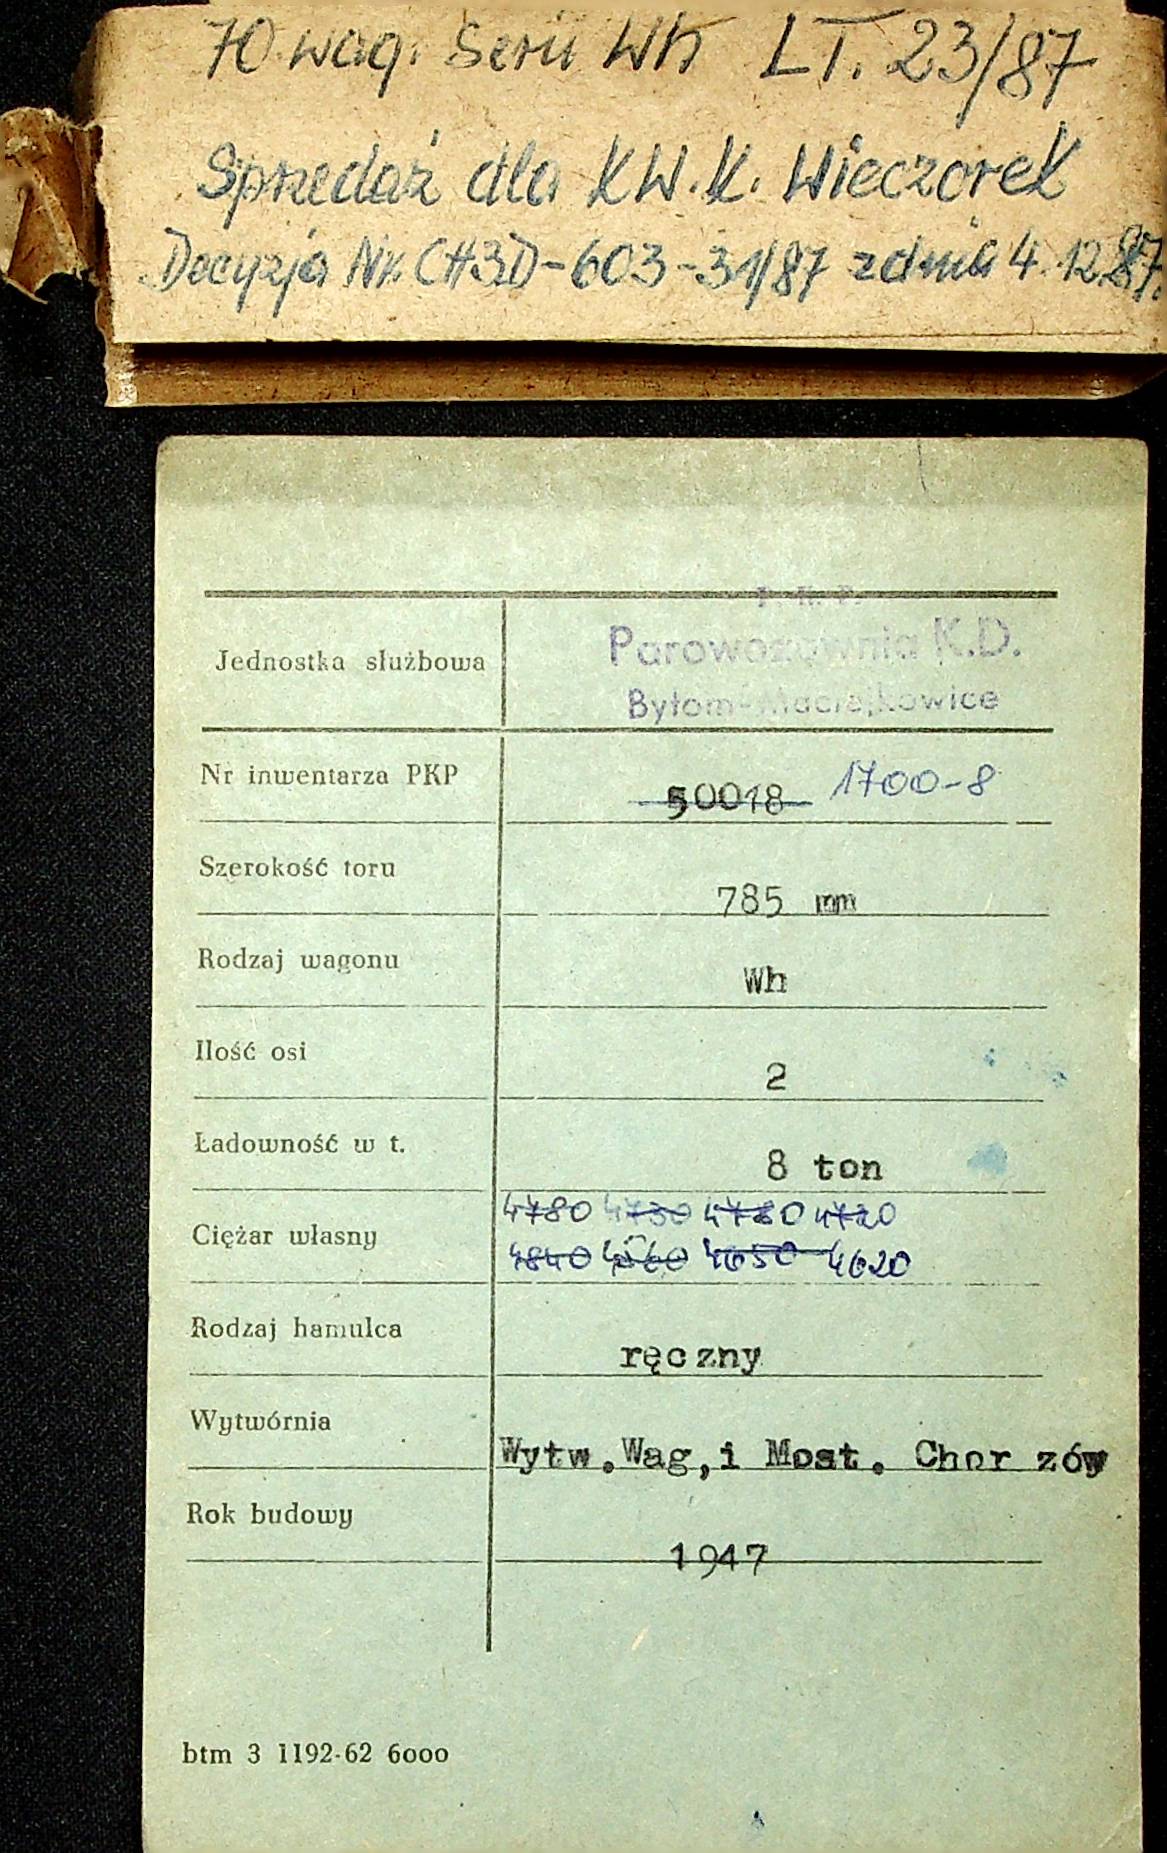 70 wag. Serii Wh LT. 23/87
Sprzedaż dla KW.K. Wieczorek
Decyzja Nr. CH3D-603-31/87 z dnia 4.12.87.
P. K. P.
Jednostka służbowa Parowozownia K.D.
Bytom-Maciejkowice
Nr inwentarza PKP 50018 1700-8
Szerokość toru 785 mm
Rodzaj wagonu Wh
Ilość osi 2
Ładowność w t. 8 ton
4780 4730 4780 4720
Ciężar własny 4840 4560 4650 4620
Rodzaj hamulca ręczny
Wytwórnia Wytw.Wag,i Most. Chor zów
Rok budowy 1947
btm 3 1192-62 6000